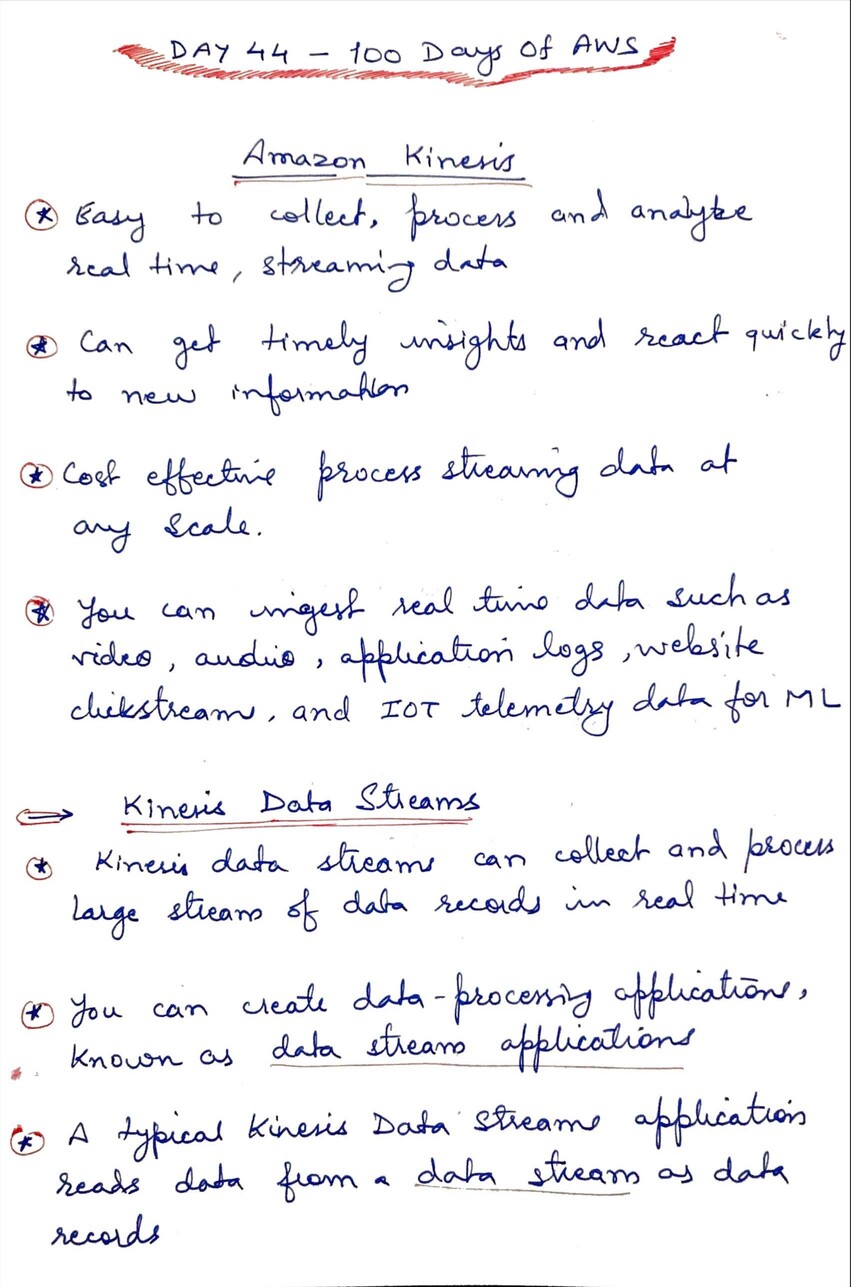 DAY 44 - 100 Days Of AWS
Amazon Kinesis
Easy to collect, process and analyze
real time, streaming data
Can get timely insights and react quickly
to new information
Cost effective process streaming data at
any scale.
You can ingest real time data such as
video, audio, application logs, website
clickstream, and IOT telemetry data for ML
Kinesis Data Streams
Kinesis data streams can collect and process
large stream of data records in real time
You can create data-processing applications,
known as data stream applications
A typical Kinesis Data Streams application
reads data from a data stream as data
records